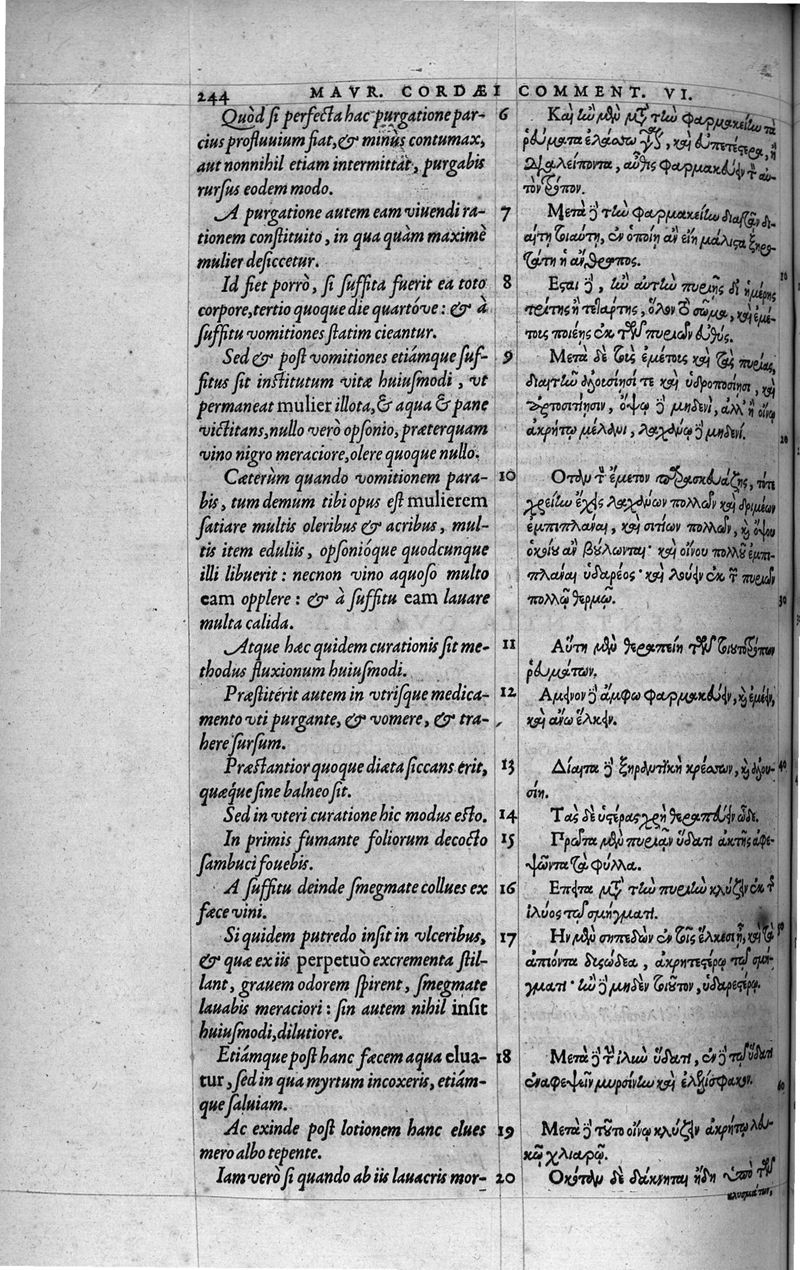 244 MAVR. CORDÆI COMMENT. VI.
Quòd si perfecta hac purgatione par-
cius profluuium fiat, & minùs contumax,
aut nonnihil etiam intermittat, purgabis
rursus eodem modo.
A purgatione autem eam viuendi ra-
tionem constituito, in qua quàm maximè
mulier desiccetur.
Id fiet porrò, si suffita fuerit ea toto
corpore, tertio quoque die quartóve: & à
suffitu vomitiones statim cieantur.
Sed & post vomitiones etiámque suf-
fitus sit institutum vitæ huiusmodi, vt
permaneat mulier illota, & aqua & pane
victitans, nullo verò opsonio, præterquam
vino nigro meraciore, olere quoque nullo.
Cæterùm quando vomitionem para-
bis, tum demum tibi opus est mulierem
satiare multis oleribus & acribus, mul-
tis item eduliis, opsonióque quodcunque
illi libuerit: necnon vino aquoso multo
eam opplere: & à suffitu eam lauare
multa calida.
Atque hæc quidem curationis sit me-
thodus fluxionum huiusmodi.
Præstiterit autem in vtrisque medica-
mento vti purgante, & vomere, & tra-
here sursum.
Præstantior quoque diæta siccans erit,
quæque sine balneo sit.
Sed in vteri curatione hic modus esto.
In primis fumante foliorum decocto
sambuci fouebis.
A suffitu deinde smegmate collues ex
fæce vini.
Si quidem putredo insit in vlceribus,
& quæ ex iis perpetuò excrementa stil-
lant, grauem odorem spirent, smegmate
lauabis meraciori: sin autem nihil insit
huiusmodi, dilutiore.
Etiámque post hanc fæcem aqua elua-
tur, sed in qua myrtum incoxeris, etiám-
que saluiam.
Ac exinde post lotionem hanc elues
mero albo tepente.
Iam verò si quando ab iis lauacris mor-
6
7
8
9
10
11
12
13
14
15
16
17
18
19
20
Καὶ ἢν μὲν μετὰ τὴν φαρμακείην τὰ
ῥεύματα ἐλάσσω
διαλείποντα, αὖθις φαρμακεύειν τὸν αὐ-
τὸν τρόπον.
Μετὰ δὲ τὴν φαρμακείην διαιτᾷν δι-
αίτῃ τοιαύτῃ, ἐν ὁποίῃ ἂν εἴη μάλιστα ξηρο-
τάτη ἡ ἄνθρωπος.
Εσται δὲ, ἢν αὐτὴν πυριῇς δι ἡμέρης
τρίτης ἢ τετάρτης, ὅλον τὸ σῶμα, καὶ ἐμέ-
τους ποιέῃς ἐκ τῶν πυριῶν εὐθύς.
Μετὰ δὲ τοὺς ἐμέτους καὶ τὰς πυρίας,
διαιτᾷν ἀλουσίῃσί τε καὶ ὑδροποσίῃσι, καὶ
ἀρτοσιτίῃσιν, ὄψῳ δὲ μηδενὶ, ἀλλ' ἢ οἴνῳ
ἀκρήτῳ μέλανι, λαχάνῳ δὲ μηδενί.
Οταν τὸν ἔμετον παρασκευάζῃς, τότε
λαχάνων πολλῶν καὶ δριμέων
ἐμπιπλάναι, καὶ σιτίων πολλῶν, καὶ ὄψου
ὁκοίου ἂν βούλωνται· καὶ οἴνου πολλοῦ ἐμπι-
πλάναι ὑδαρέος· καὶ λούειν ἐκ τῶν πυριῶν
πολλῷ θερμῷ.
Αὕτη μὲν θεραπείη τῶν τοιουτοτρόπων
ῥευμάτων.
Αμεινον δὲ ἄμφω φαρμακεύειν, καὶ ἐμέειν,
καὶ ἄνω ἕλκειν.
Δίαιτα δὲ ξηραντικὴ κρέσσων, καὶ ἀλου-
σίη.
Τὰς δὲ ὑστέρας χρὴ θεραπεύειν ὧδε.
Πρῶτα μὲν πυριᾷν ὕδατι ἀκτῆς ἀφε-
ψῶντα τὰ φύλλα.
Επειτα μετὰ τὴν πυρίην κλύζειν ἐκ τῆς
ἰλύος τῷ σμήγματι.
Ην μὲν σηπεδὼν ἐν τοῖς ἕλκεσιν ᾖ, καὶ τὰ
ἀπιόντα δυσώδεα, ἀκρητεστέρῳ τῷ σμή-
γματι· ἢν δὲ μηδὲν τοιοῦτον, ὑδαρεστέρῳ.
Μετὰ δὲ τὴν ἰλὺν ὕδατι, ἐν δὲ τῷ ὕδατι
ἐναφεψεῖν μυρσίνην καὶ ἐλελίσφακον.
Μετὰ δὲ τοῦτο οἴνῳ κλύζειν ἀκρήτῳ λευ-
κῷ χλιαρῷ.
Οκόταν δὲ δάκνηται ἤδη ὑπὸ τῶν
κλυσμάτων,
10
20
30
40
50
60